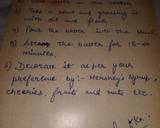 2) Take a bowl and greasing it
with oil and flour.
4) Pour the batter into the bowl
5) the batter for 15-20
minutes.
6) Decorate it as per your
preference by :- Hershey's syrup,
cherries, fruits and nuts etc.